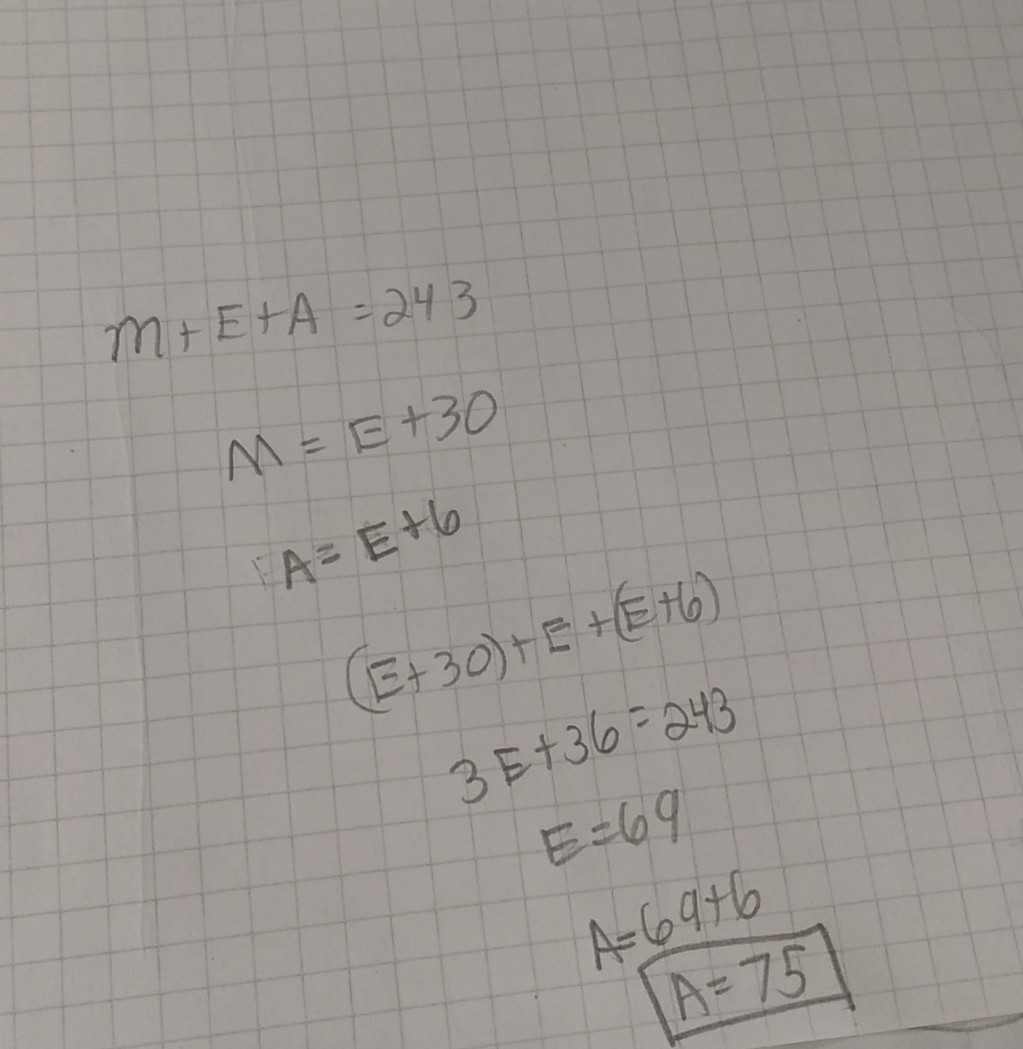 M+E+A = 243
M = E+30
A = E+6
(E+30)+E+(E+6)
3E+36=243
E=69
A=69+6
A=75